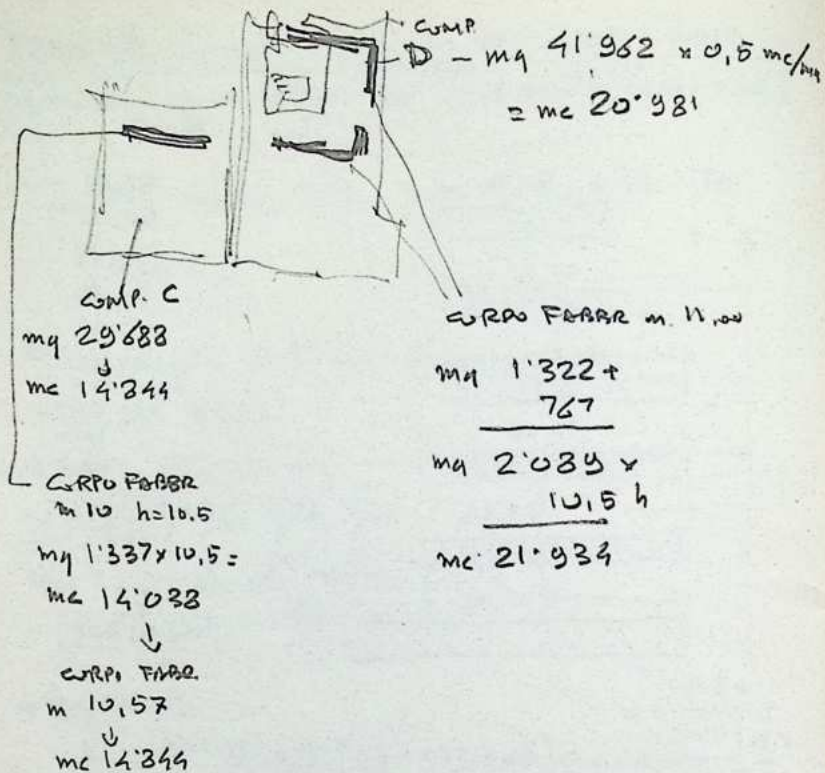 COMP.
D - mq 41'962 x 0,5 mc/mq
= mc 20'981
COMP. C
mq 29'688
↓
mc 14'844
CORPO FABBR
m 10 h=10.5
mq 1'337 x 10,5 =
mc 14'038
↓
CORPO FABBR.
m 10,57
↓
mc 14'844
CORPO FABBR m. 11,00
mq 1'322 +
767
mq 2'089 x
10,5 h
mc 21'934